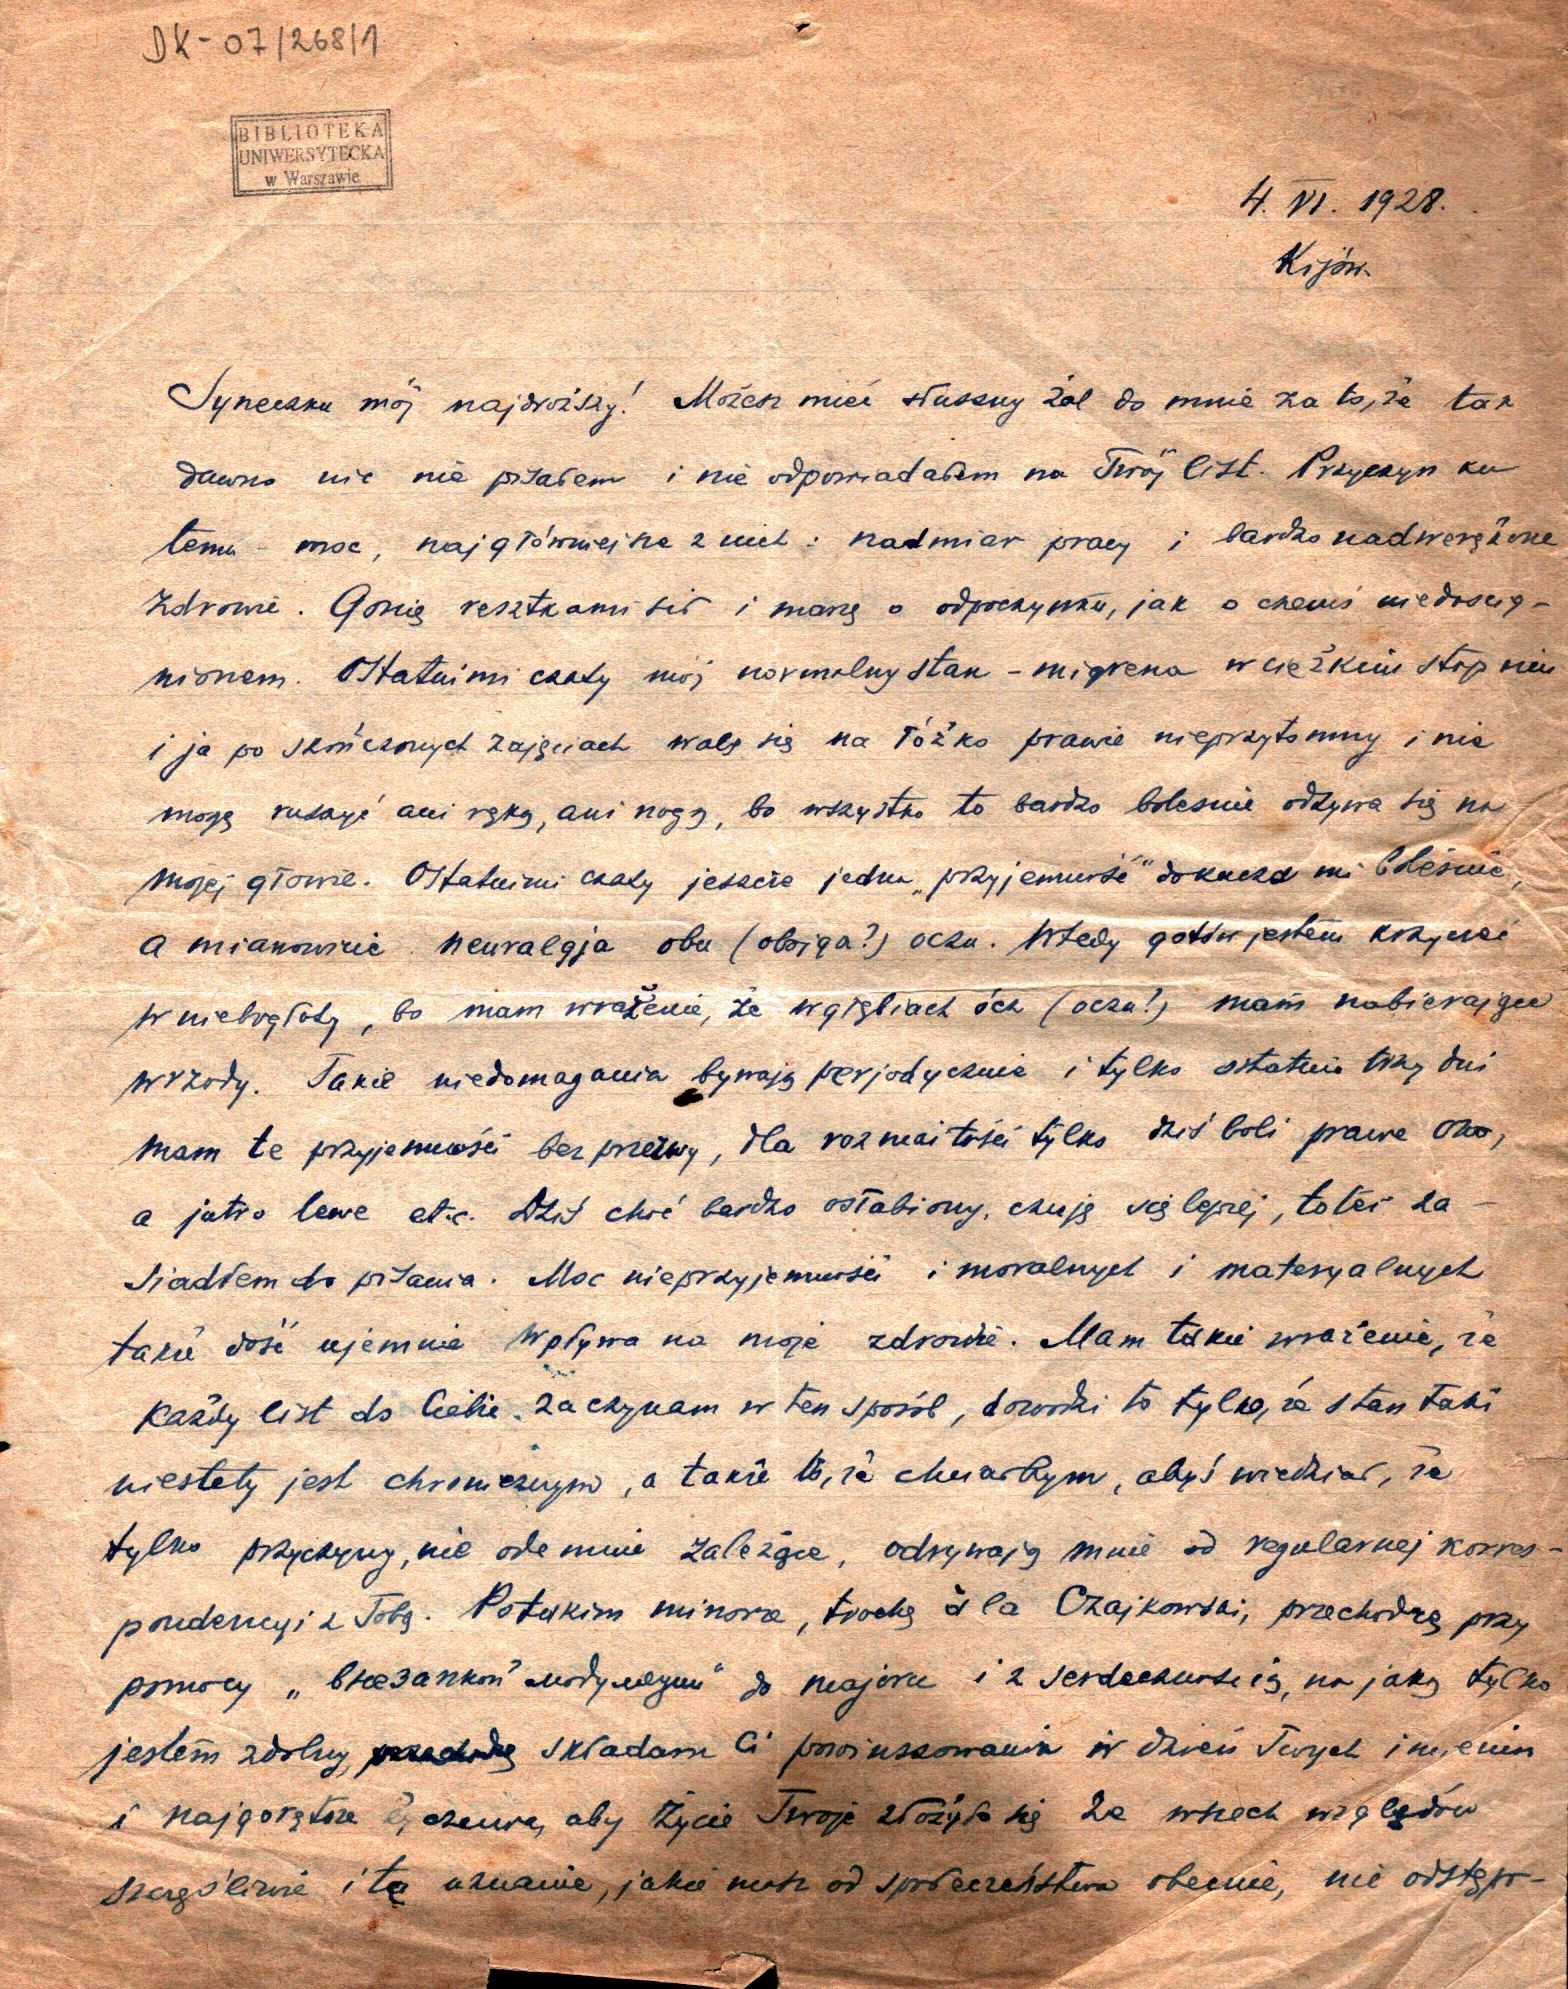 DK-07/268/1
BIBLIOTEKA
UNIWERSYTECKA
w Warszawie
4. VI. 1928.
Kijów.
Syneczku mój najdroższy! Możesz mieć słuszny żal do mnie za to, że tak
dawno nic nie pisałem i nie odpowiadałem na Twój list. Przyczyn ku
temu - moc, najgłówniejsze z nich: nadmiar pracy i bardzo nadwerężone
zdrowie. Gonię resztkami sił i marzę o odpoczynku, jak o czemś niedościg-
nionem. Ostatnimi czasy mój normalny stan - migrena w ciężkim stopniu
i ja po skończonych zajęciach walę się na łóżko prawie nieprzytomny i nie
mogę ruszyć ani ręką, ani nogą, bo wszystko to bardzo boleśnie odzywa się na
mojej głowie. Ostatnimi czasy jeszcze jedna „przyjemność" dokucza mi boleśnie,
a mianowicie neuralgja obu (obojga?) oczu. Wtedy gotów jestem krzyczeć
w niebogłosy, bo mam wrażenie, że w głębiach ócz (oczu?) mam nabierające
wrzody. Takie niedomagania bywają perjodycznie i tylko ostatnie trzy dni
mam te przyjemności bez przerwy, dla rozmaitości tylko dziś boli prawe oko,
a jutro lewe etc. Dziś choć bardzo osłabiony, czuję się lepiej, toteż za-
siadłem do pisania. Moc nieprzyjemności i moralnych i materyalnych
także dość ujemnie wpływa na moje zdrowie. Mam takie wrażenie, że
każdy list do Ciebie zaczynam w ten sposób, dowodzi to tylko, że stan taki
niestety jest chronicznym, a także to, że chciałbym, abyś wiedział, że
tylko przyczyny, nie ode mnie zależące, odrywają mnie od regularnej korres-
pondencyi z Tobą. Po takim minorze, trochę à la Czajkowski, przechodzę przy
pomocy „внезапной модуляции" do majoru i z serdecznością, na jaką tylko
jestem zdolny, składam Ci powinszowania w dzień Twych imienin
i najgorętsze życzenia, aby życie Twoje złożyło się ze wszech względów
szczęśliwie i te uznanie, jakie masz od społeczeństwa obecnie, nie odstępo-